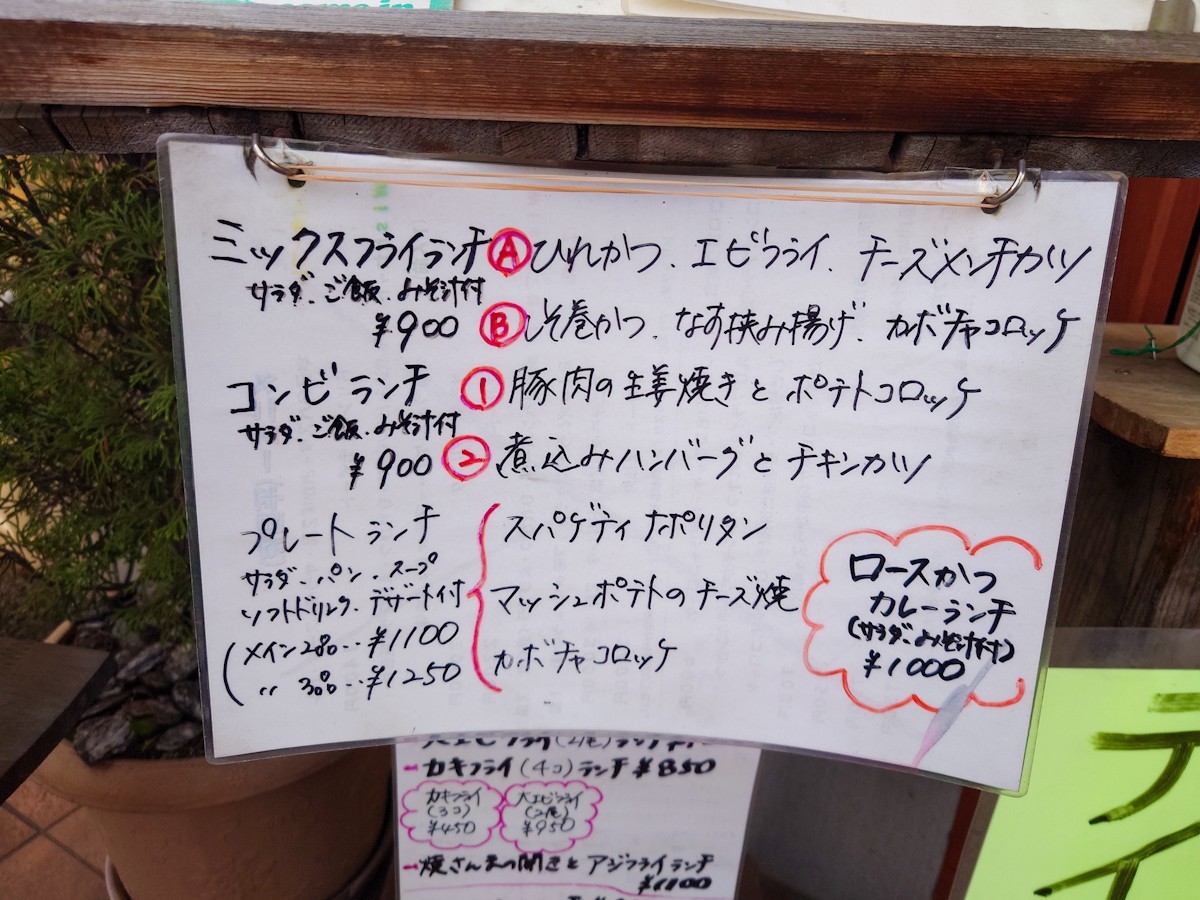 ミックスフライランチ Ⓐ ひれかつ、エビフライ、チーズメンチカツ
サラダ、ご飯、みそ汁付
¥900 Ⓑ しそ巻かつ、なす挟み揚げ、カボチャコロッケ
コンビランチ ① 豚肉の生姜焼きとポテトコロッケ
サラダ、ご飯、みそ汁付
¥900 ② 煮込みハンバーグとチキンカツ
プレートランチ
サラダ、パン、スープ
ソフトドリンク、デザート付
(メイン2品‥¥1100
〃 3品‥¥1250
スパゲティナポリタン
マッシュポテトのチーズ焼
カボチャコロッケ
ロースかつ
カレーランチ
(サラダ、みそ汁付)
¥1000
カキフライ(4コ)ランチ ¥850
カキフライ
(3コ)
¥450
大エビフライ
(2尾)
¥950
焼さんまの開きとアジフライランチ
¥1100
ディ